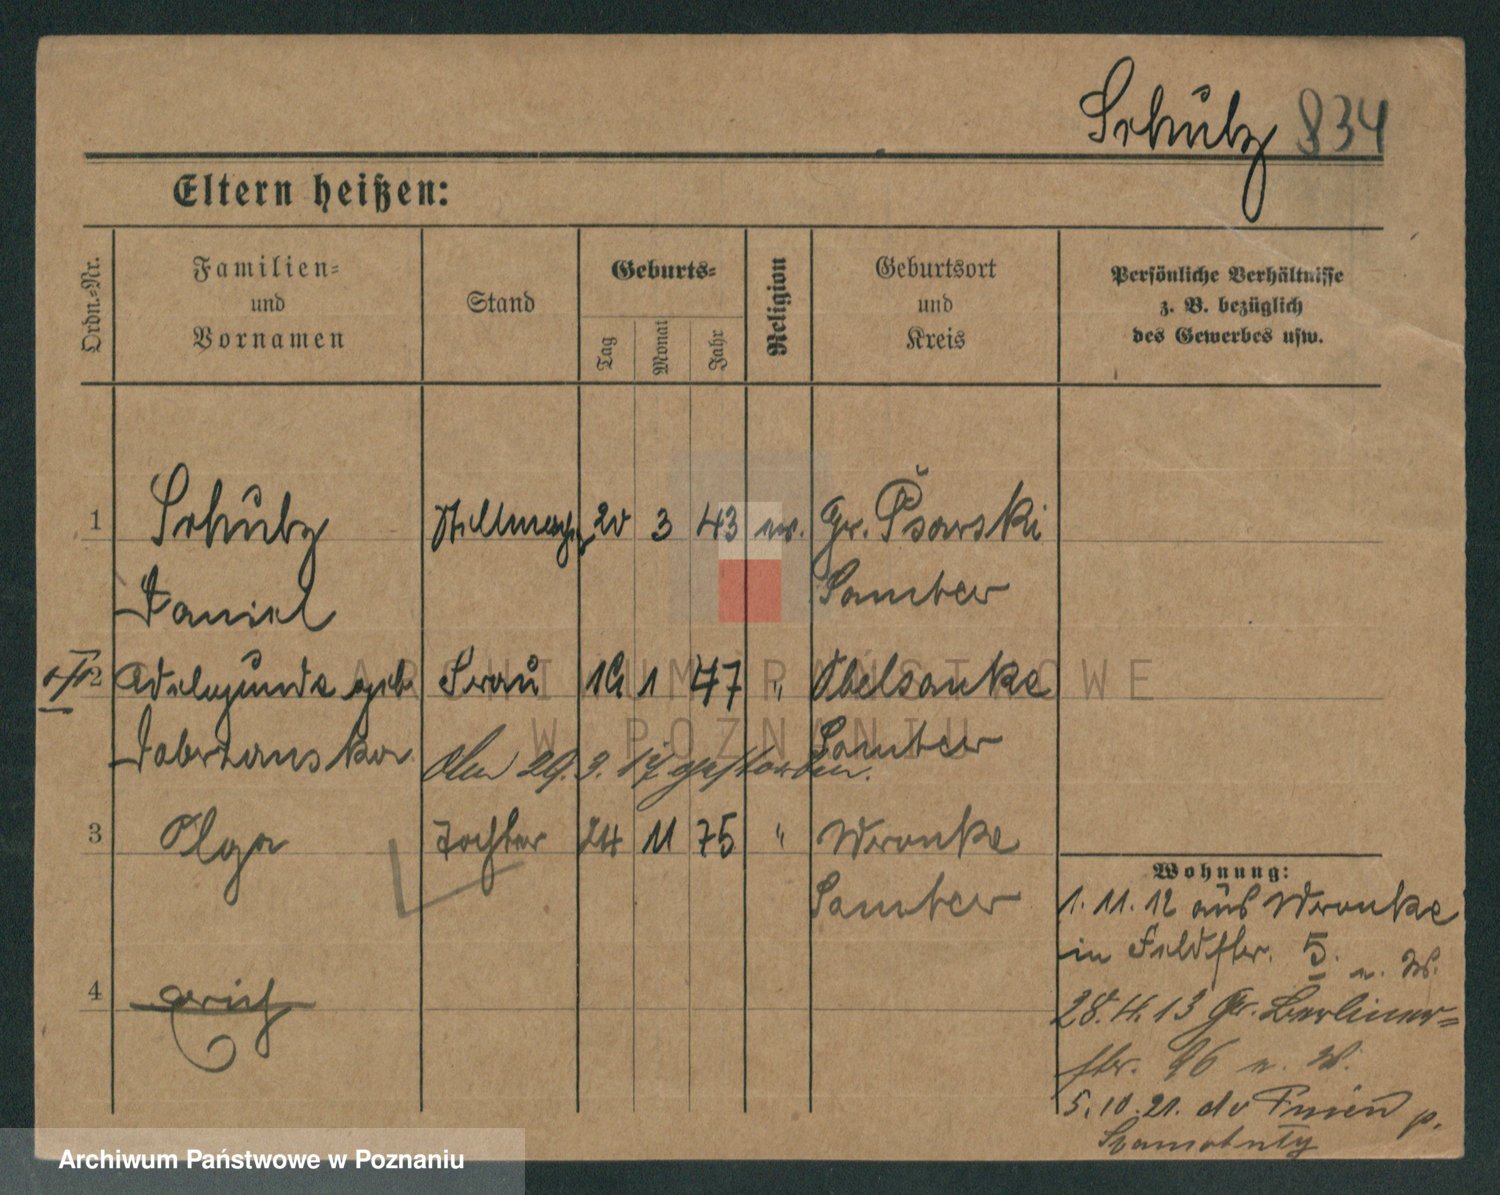 Schulz 834
Eltern heißen:
Ordn.-Nr.
Familien-
und
Vornamen
Stand
Geburts-
Tag
Monat
Jahr
Religion
Geburtsort
und
Kreis
Persönliche Verhältnisse
z. B. bezüglich
des Gewerbes usw.
1 Schulz Stellmacher 20 3 43 ev. Gr. Psarski
Daniel Samter
2 Adelgunde geb. Frau 19 1 47 " Obelzanke
Samter
Am 29. 3. 17 gestorben.
3 Olga Tochter 24 11 75 " Wronke
Samter
4 Erich
Wohnung:
1. 11. 12 aus Wronke
in Feldstr. 5. n. W.
28. 4. 13 Gr. Berliner-
str. 96 n. W.
5. 10. 21. do p.
Szamotuły
ARCHIWUM PAŃSTWOWE
W POZNANIU
Archiwum Państwowe w Poznaniu